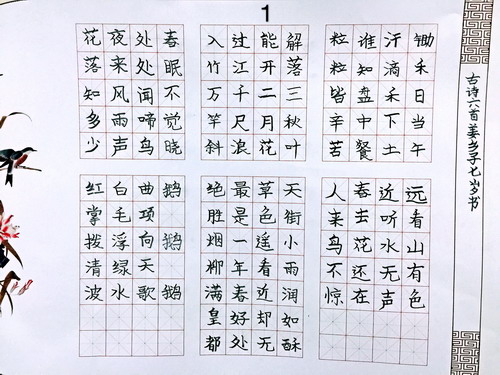 1
古诗六首姜子七岁书
锄禾日当午
汗滴禾下土
谁知盘中餐
粒粒皆辛苦
解落三秋叶
能开二月花
过江千尺浪
入竹万竿斜
春眠不觉晓
处处闻啼鸟
夜来风雨声
花落知多少
远看山有色
近听水无声
春去花还在
人来鸟不惊
天街小雨润如酥
草色遥看近却无
最是一年春好处
绝胜烟柳满皇都
鹅鹅鹅
曲项向天歌
白毛浮绿水
红掌拨清波